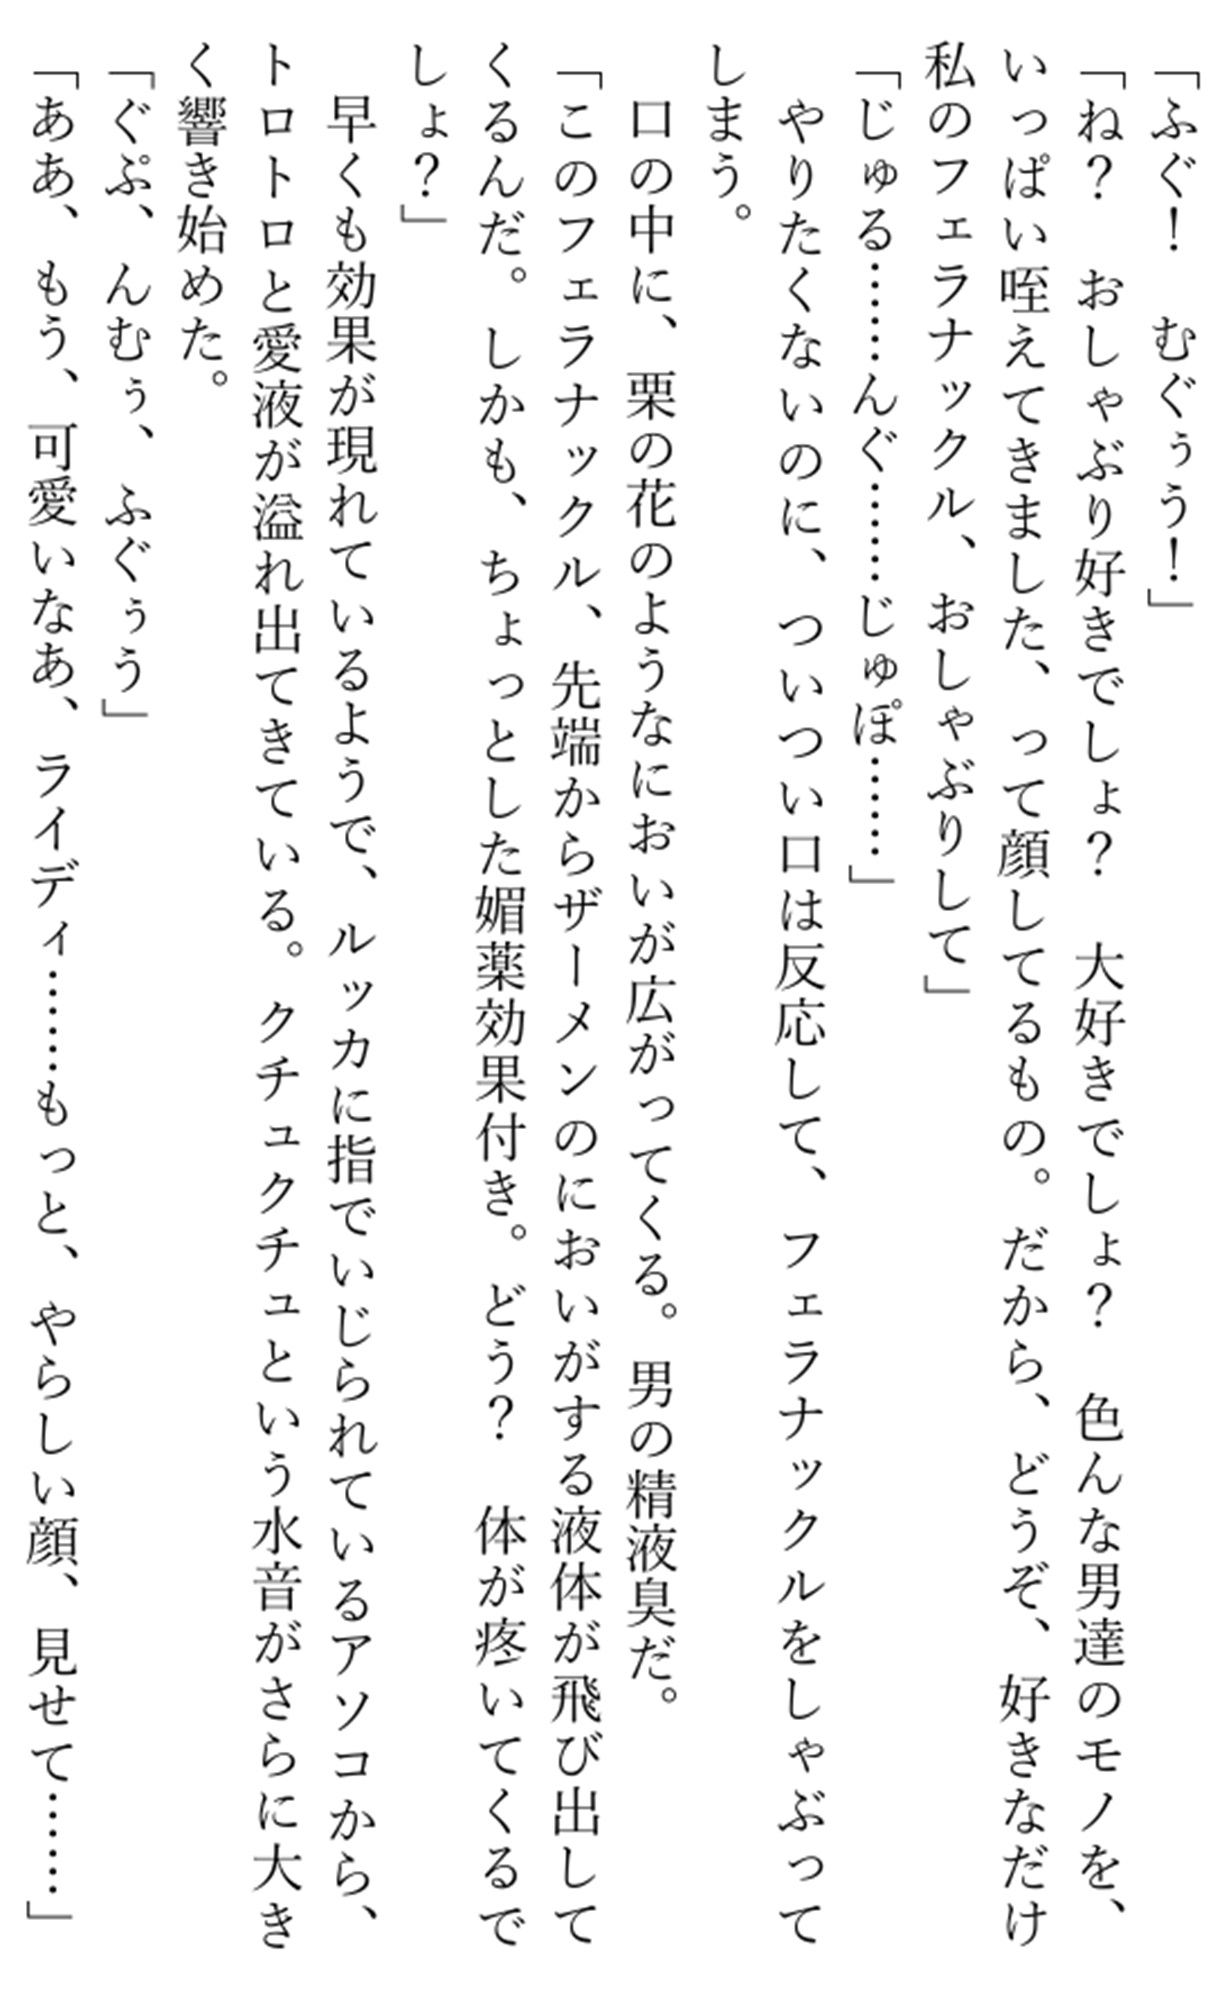 「ふぐ！　むぐぅう！」
「ね？　おしゃぶり好きでしょ？　大好きでしょ？　色んな男達のモノを、
いっぱい咥えてきました、って顔してるもの。だから、どうぞ、好きなだけ
私のフェラナックル、おしゃぶりして」
「じゅる………んぐ………じゅぽ………」
　やりたくないのに、ついつい口は反応して、フェラナックルをしゃぶって
しまう。
　口の中に、栗の花のようなにおいが広がってくる。男の精液臭だ。
「このフェラナックル、先端からザーメンのにおいがする液体が飛び出して
くるんだ。しかも、ちょっとした媚薬効果付き。どう？　体が疼いてくるで
しょ？」
　早くも効果が現れているようで、ルッカに指でいじられているアソコから、
トロトロと愛液が溢れ出てきている。クチュクチュという水音がさらに大き
く響き始めた。
「ぐぷ、んむぅ、ふぐぅう」
「ああ、もう、可愛いなあ、ライディ………もっと、やらしい顔、見せて………」